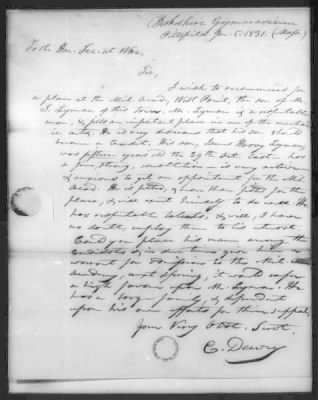 Berkshire Gymnasium
Pittsfield Jan. 5. 1831. (Mass)
To the Hon. Sec. at War,
Sir,
I wish to recommend for
a place at the Mil. Acad, West Point, the son of Mr
S. Lyman of this town. Mr. Lyman is a respectable
man, & fills an important place in one of the
He is very desirous that his son should
become a Cadet. His son, Henry Lyman,
was fifteen years old the 29th Oct. last - has
a fine, strong, constitution - is very active
& anxious to get an appointment for the Mil.
Acad. He is fitted, & more than fitted for the
place, & will exert himself to do well. He
has respectable talents, & will, I have
no doubt, employ them to his utmost.
Could you place his name among the
candidates & give him a
warrant for admission to the Mil.
Academy, next Spring, it would confer
a high favour upon Mr. Lyman. He
has a large family, & dependent
upon his own efforts for their support.
Your Very Obdt. Servt.
C. Dewey